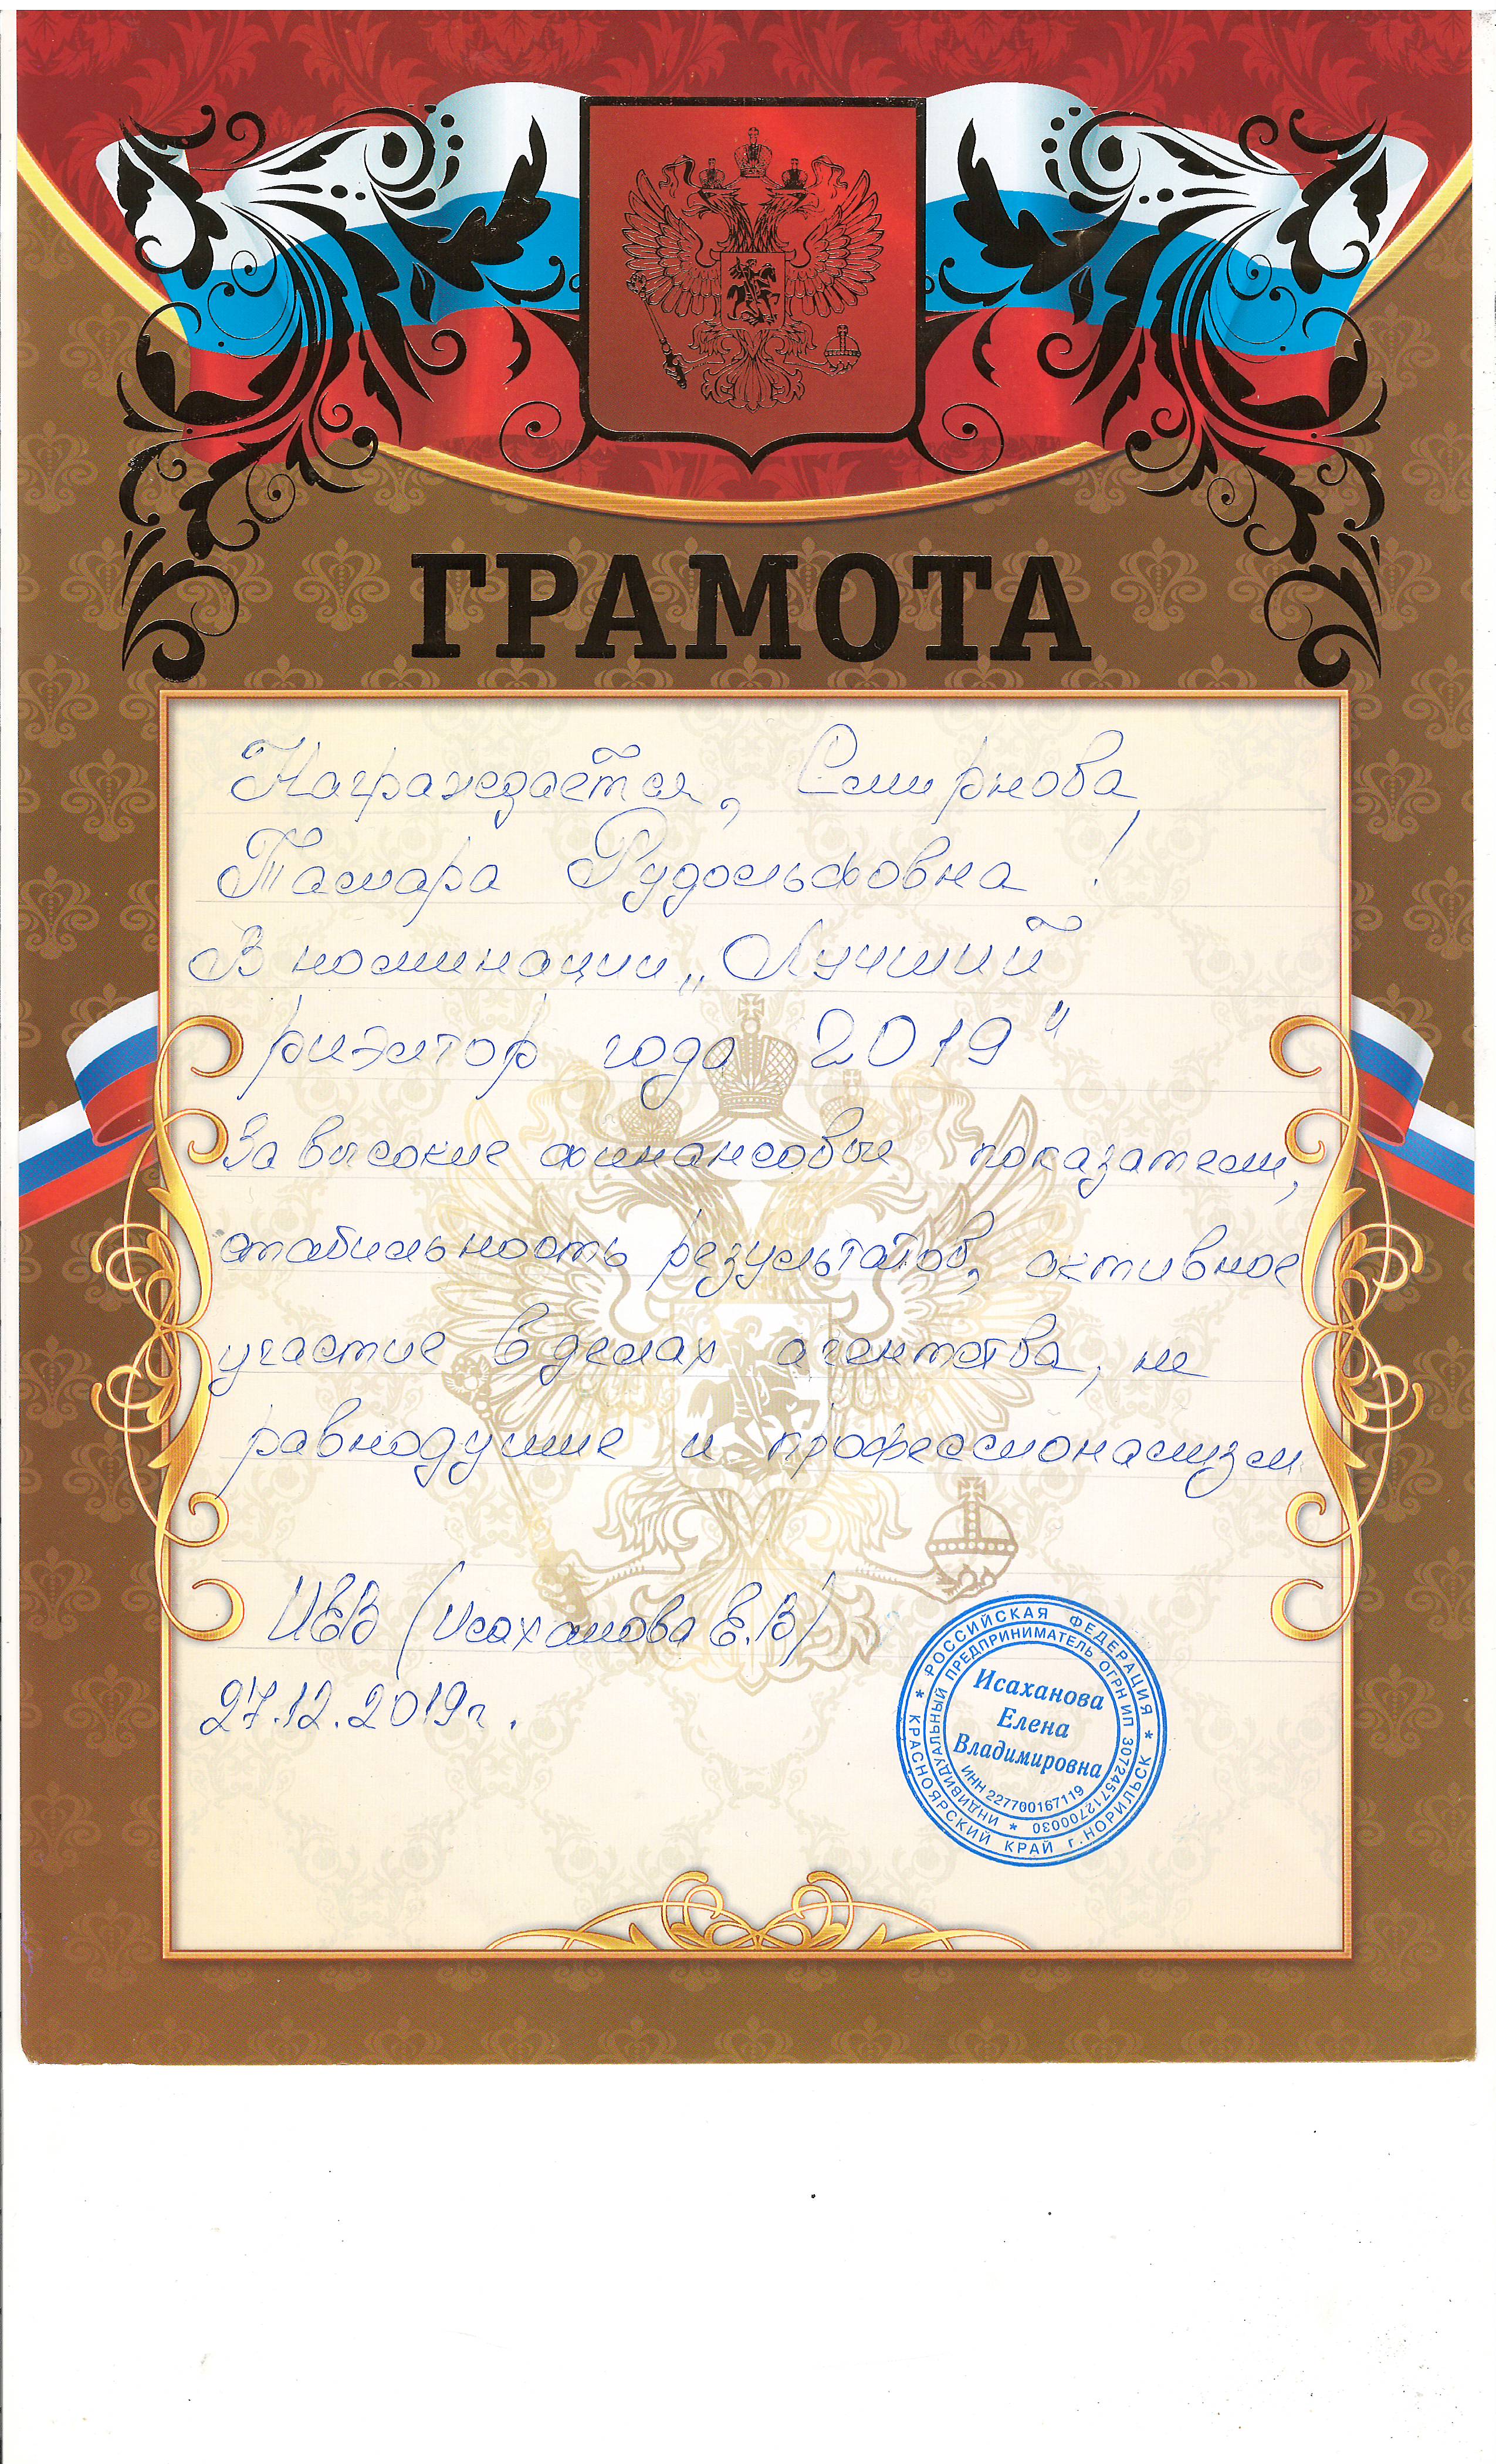 ГРАМОТА
Награждается, Смирнова
Тамара Рудольфовна !
В номинации „Лучший
риэлтор года 2019"
За высокие финансовые показатели,
стабильность результатов, активное
участие в делах агентства, не
равнодушие и профессионализм
ИЕВ (Исаханова Е.В)
27.12.2019г.
* РОССИЙСКАЯ ФЕДЕРАЦИЯ * КРАСНОЯРСКИЙ КРАЙ г.НОРИЛЬСК
* ИНДИВИДУАЛЬНЫЙ ПРЕДПРИНИМАТЕЛЬ ОГРНИП 307245712700030
Исаханова
Елена
Владимировна
ИНН 227700167119